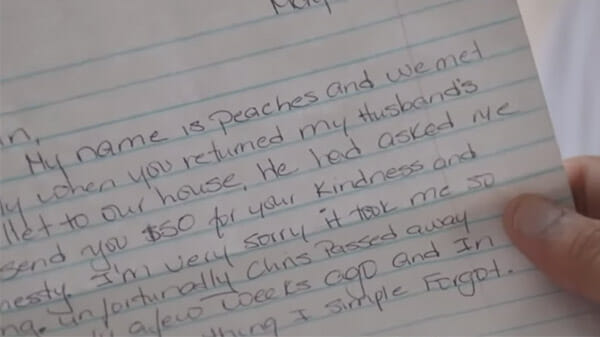 May
n,
My name is Peaches and we met
ly when you returned my Husband's
llet to our house. He had asked me
send you $50 for your kindness and
nesty. I'm very sorry it took me so
ng. Unfortunally Chris Passed away
ly a few weeks ago and In
thing I simple Forgot.